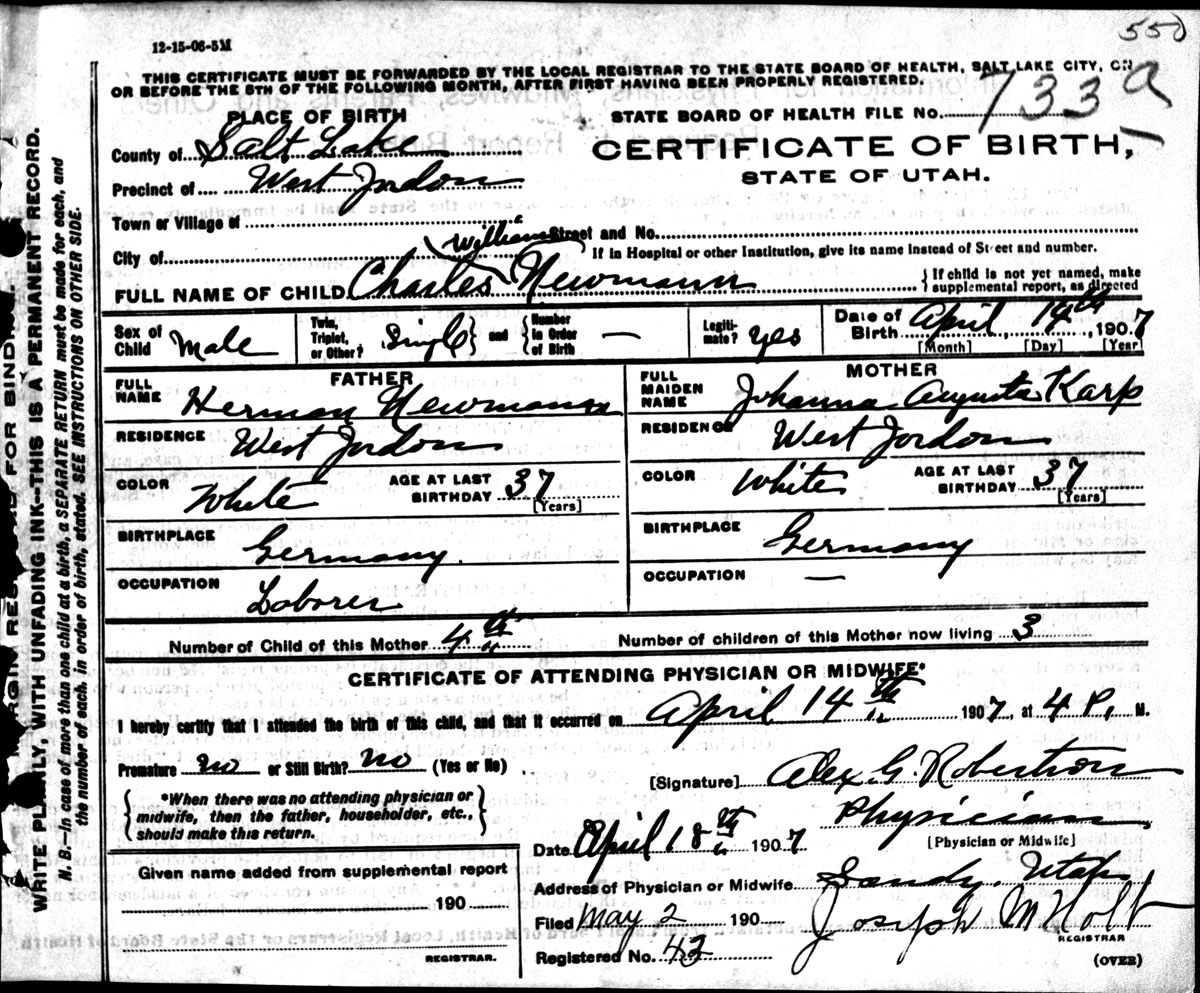 550
12-15-06-5M
THIS CERTIFICATE MUST BE FORWARDED BY THE LOCAL REGISTRAR TO THE STATE BOARD OF HEALTH, SALT LAKE CITY, ON
OR BEFORE THE 5TH OF THE FOLLOWING MONTH, AFTER FIRST HAVING BEEN PROPERLY REGISTERED.
PLACE OF BIRTH
County of Salt Lake
Precinct of West Jordon
Town or Village of
City of
STATE BOARD OF HEALTH FILE No. 733 a
CERTIFICATE OF BIRTH,
STATE OF UTAH.
Street and No.
If in Hospital or other Institution, give its name instead of Street and number.
FULL NAME OF CHILD Charles (William) Newmann
If child is not yet named, make
supplemental report, as directed
Sex of Child Male
Twin, Triplet, or Other? Single and Number in Order of Birth —
Legiti-mate? yes
Date of Birth April 14th, 1907
[Month] [Day] [Year]
FATHER
FULL NAME Herman Newmann
RESIDENCE West Jordon
COLOR White AGE AT LAST BIRTHDAY 37 [Years]
BIRTHPLACE Germany.
OCCUPATION Laborer
MOTHER
FULL MAIDEN NAME Johanna Augusta Karp
RESIDENCE West Jordon
COLOR White AGE AT LAST BIRTHDAY 37 [Years]
BIRTHPLACE Germany
OCCUPATION —
Number of Child of this Mother 4th Number of children of this Mother now living 3
CERTIFICATE OF ATTENDING PHYSICIAN OR MIDWIFE*
I hereby certify that I attended the birth of this child, and that it occurred on April 14th 1907, at 4 P. M.
Premature no or Still Birth? no (Yes or No)
*When there was no attending physician or
midwife, then the father, householder, etc.,
should make this return.
[Signature] Alex. G. Robertson
Physician
[Physician or Midwife]
Date April 18th 1907
Given name added from supplemental report
190
REGISTRAR.
Address of Physician or Midwife Sandy. Utah
Filed May 2 190 Joseph M Holt
REGISTRAR
Registered No. 43
(OVER)
WRITE PLAINLY, WITH UNFADING INK—THIS IS A PERMANENT RECORD.
N. B.—In case of more than one child at a birth, a SEPARATE RETURN must be made for each, and
the number of each, in order of birth, stated. SEE INSTRUCTIONS ON OTHER SIDE.